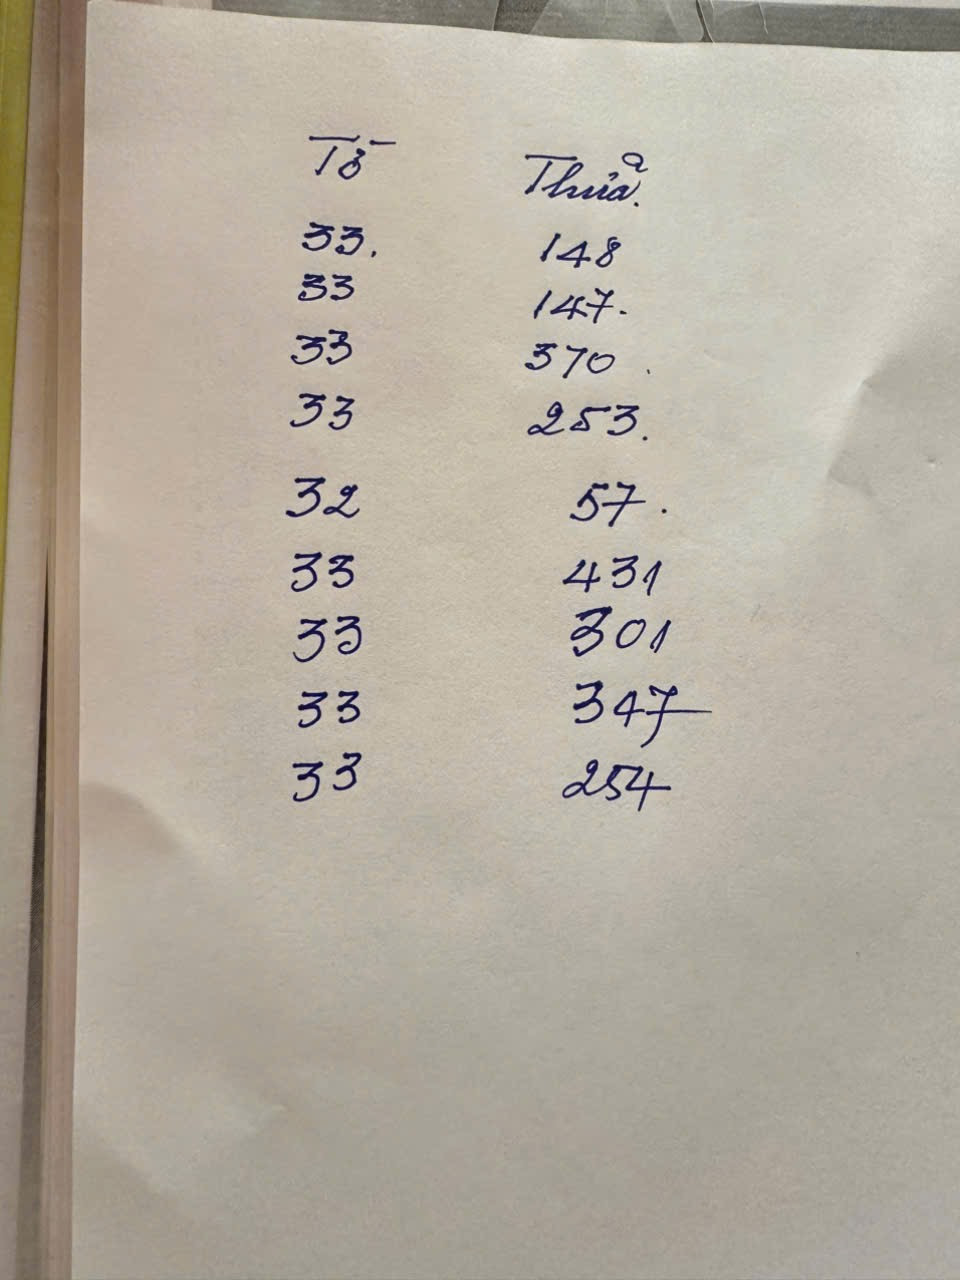 Tờ Thửa.
33. 148
33 147.
33 370.
33 253.
32 57.
33 431
33 301
33 347
33 254